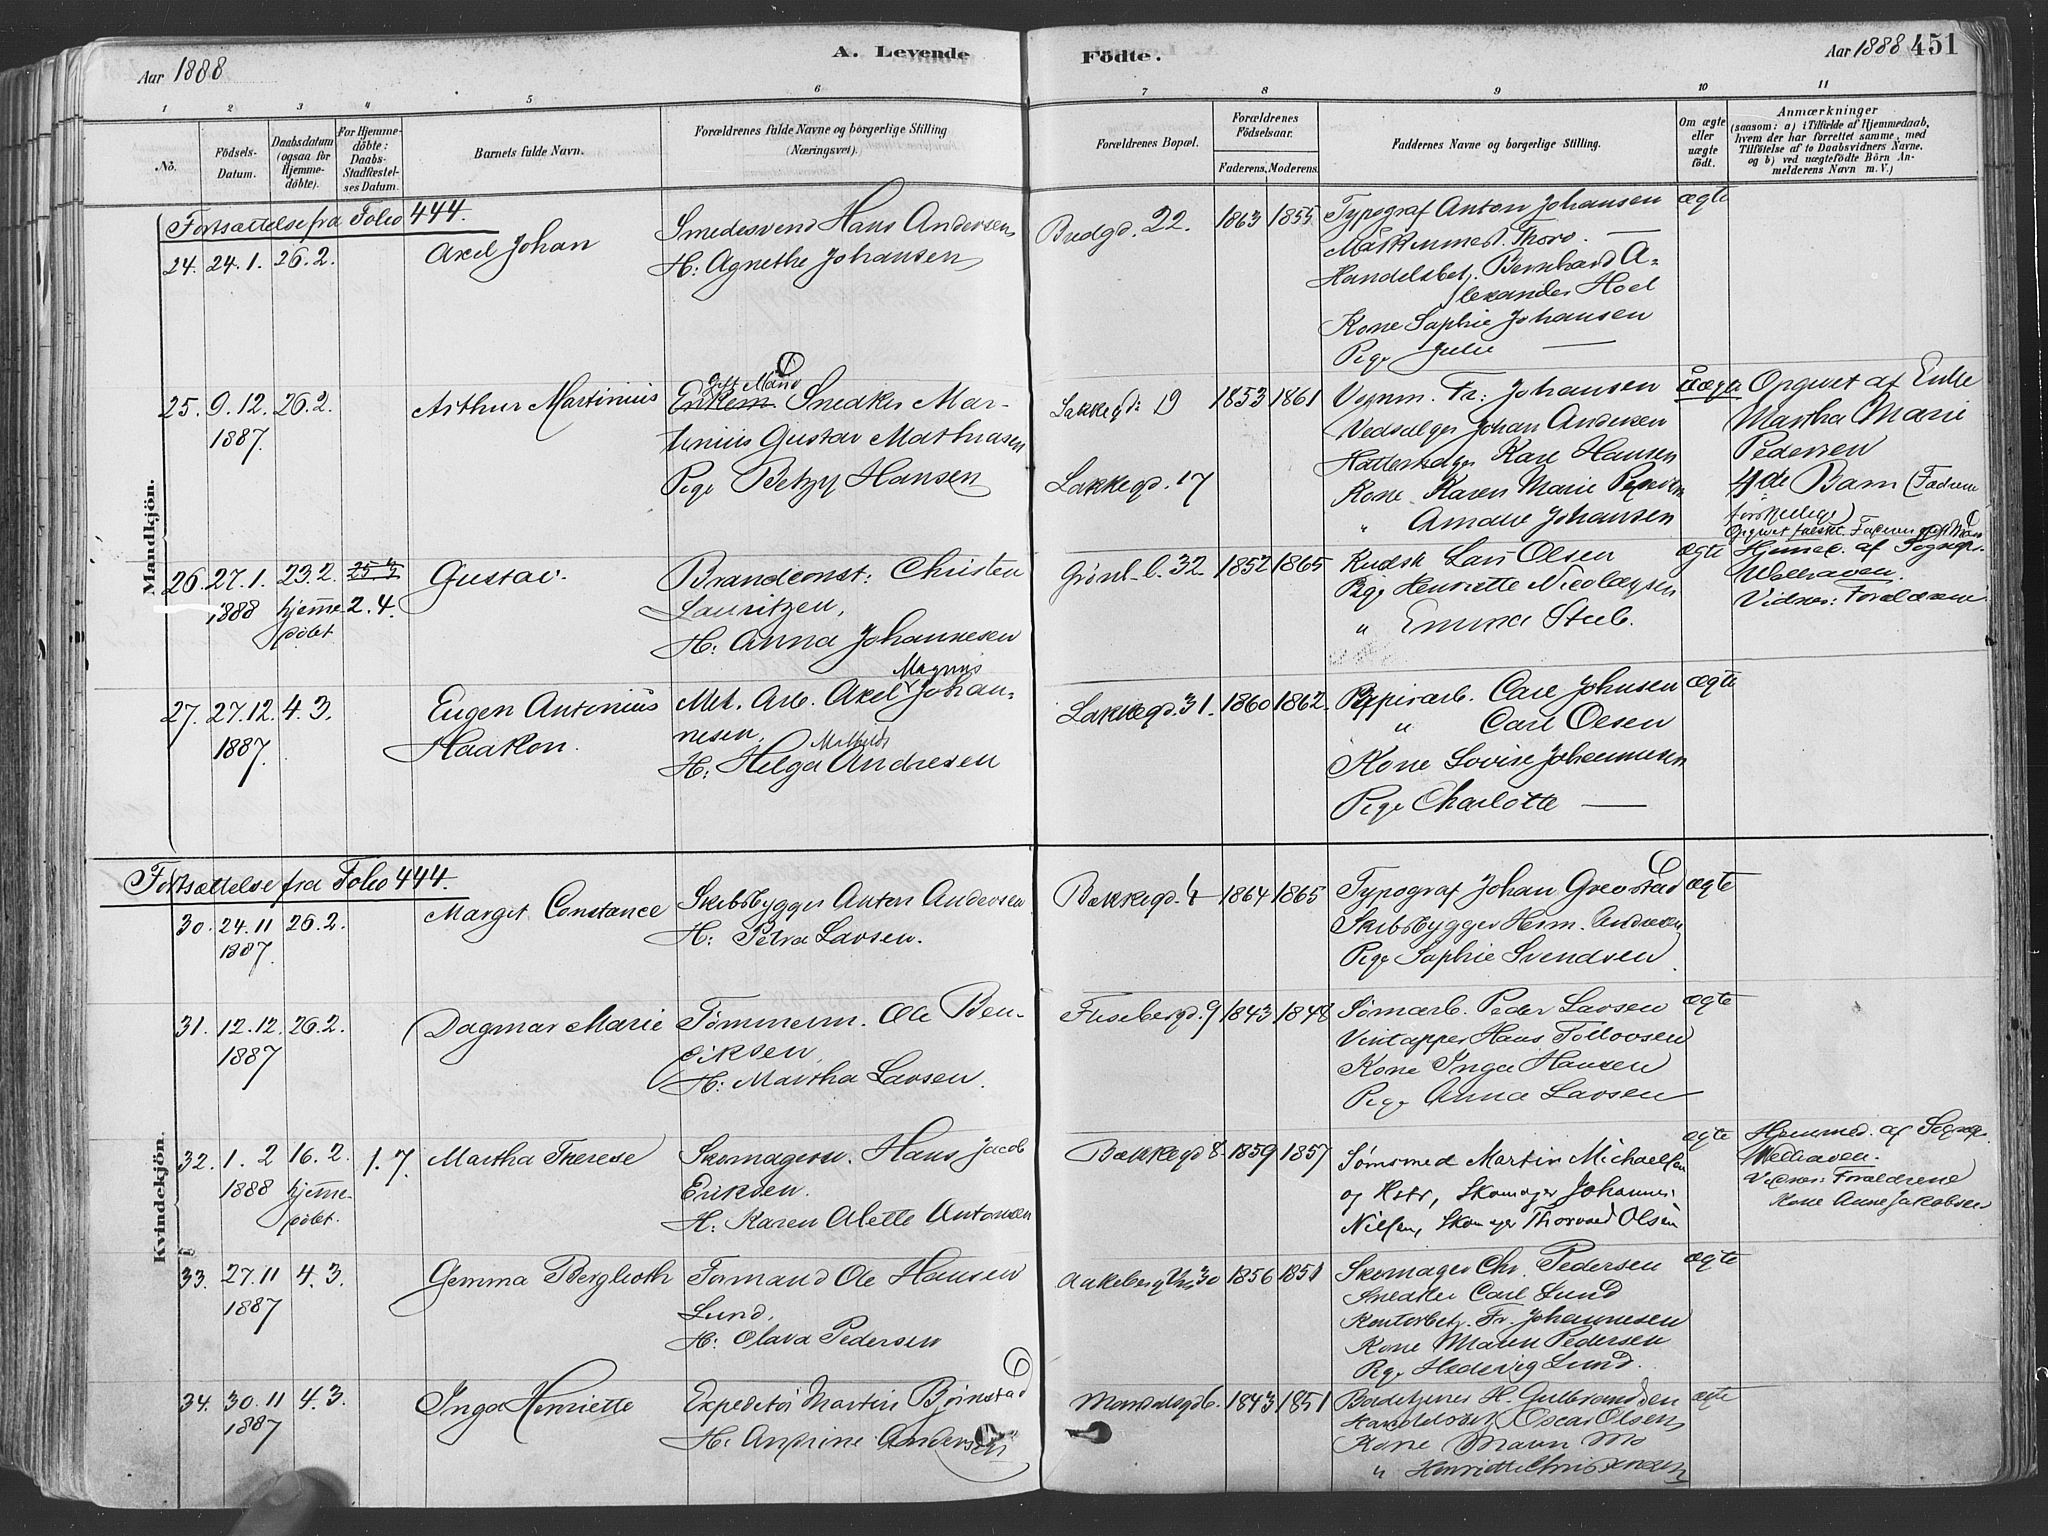 Aar 1888
A. Levende
Födte.
Aar 1888 451
1 2 3 4 5 6 7 8 9 10 11
No.
Födsels-
Datum.
Daabsdatum
(ogsaa for
Hjemme-
döbte).
For Hjemme-
döbte:
Daabs-
Stadfæstel-
ses Datum.
Barnets fulde Navn.
Forældrenes fulde Navne og borgerlige Stilling
(Næringsvei).
Forældrenes Bopæl.
Forældrenes
Födselsaar.
Faderens. Moderens.
Faddernes Navne og borgerlige Stilling.
Om ægte
eller
uægte
födt.
Anmærkninger
(saasom: a) i Tilfælde af Hjemmedaab,
hvem der har forrettet samme, med
Tilföielse af to Daabsvidners Navne.
og b) ved uægtefödte Börn An-
melderens Navn m. V.)
Mandkjön.
Fortsættelse fra Folio 444.
24. 24.1. 26.2.
Axel Johan
Smedesvend Hans Andersen
H: Agnethe Johansen
Brudgd. 22. 1863 1855
Typograf Anton Johansen
Maskinmest. Thorv. —
Handelsbet. Bernhard A-
lexander Hoel
Kone Sophie Johansen
Pige Julie —
ægte
25. 9.12. 26.2.
1887.
Arthur Martinius
Gift Mand
Enkem. Snedker Mar-
tinius Gustav Mathiasen
Pige Betzy Hansen
Lakkegd: 19 1853 1861
Lakkegd. 17
Vognm. Fr: Johansen
Vedsælger Johan Andersen
Karl Hansen
Kone Karen Marie Pedersen
" Amalie Johansen
Uægte
Opgivet af Enke
Martha Marie
Pedersen
4de Barn (Fædrene
forskjellige)
Opgivet falskt. Faderen gift Mand
26. 27.1. 23.2. 2.4.
1888 hjemme
døbt
Gustav.
Brandconst: Christen
Lauritzen,
H: Anna Johannesen
Grønl. l. 32 1852 1865
Kudsk Lars Olsen
Pige Henriette Nicolaysen
" Emma Stub.
ægte
Hjemmed. af Sognepr.
Welhaven.
Vidner: Forældrene
27. 27.12. 4.3.
1887.
Eugen Antonius
Haakon.
Magnus
Met. Arb. Axel Johan-
nesen,
Mathilde
H: Helga Andresen
Lakkegd. 31. 1860 1862.
Papirarb. Carl Johnsen
" Carl Olsen
Kone Lovise Johannesen
Pige Charlotte —
ægte
Kvindekjön.
Fortsættelse fra Folio 444.
30. 24.11 26.2.
1887.
Margit Constance
Skibsbygger Anton Andersen
H: Petra Larsen.
Bakkegd. 4 1864 1865
Typograf Johan Grevstad
Skibsbygger Herm. Andresen
Pige Sophie Svendsen
ægte
31. 12.12. 26.2.
1887
Dagmar Marie
Tømmerm. Ole Ben-
diksen,
H: Martha Larsen.
Flisebergd. 9 1843 1848
Jernarb. Peder Larsen
Vintapper Hans Tollovsen
Kone Inga Hansen
Pige Anna Larsen
ægte
32. 1.2 16.2. 1.7.
1888 hjemme-
døbt.
Martha Therese
Skomagersv. Hans Jacob
Eriksen.
H: Karen Alette Antonsen
Bakkegd 8. 1859 1857
Martin Michaelsen
og Hstr, Skomager Johannes
Nilsen, Skomager Thorvald Olsen
ægte
Hjemmed. af Sognepr.
Welhaven.
Vidner: Forældrene
Kone Anne Jakobsen
33. 27.11 4.3.
1887
Gemma Berglioth
Formand Ole Hansen
Lund,
H: Olava Pedersen
Aakebergvn 30 1856 1851
Skomager Chr. Pedersen
Snedker Carl Lund
Kontorbetj. Fr. Johannesen
Kone Maren Pedersen
Pige Hedevig Lund.
ægte
34. 30.11 4.3.
1887
Inga Henriette
Expeditør Martin Bjørnstad
H: Andrine Andersen
Mandalsgd 6. 1843 1851
H. Gulbrandsen
Oscar Olsen
Kone Maren Mo
" Henriette Christensen
ægte